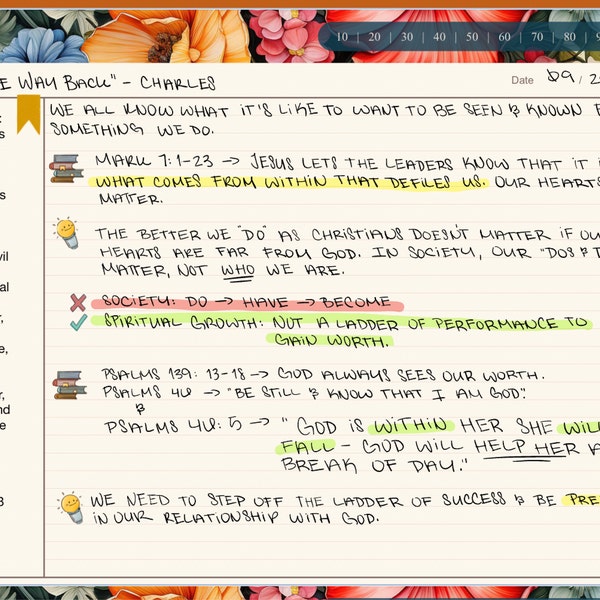 10 | 20 | 30 | 40 | 50 | 60 | 70 | 80 |
WAY BACK" - CHARLES
Date 09 / 2
WE ALL KNOW WHAT IT'S LIKE TO WANT TO BE SEEN & KNOWN
SOMETHING WE DO.
MARK 7:1-23 → JESUS LETS THE LEADERS KNOW THAT IT
WHAT COMES FROM WITHIN THAT DEFILES US. OUR HEARTS
MATTER.
THE BETTER WE "DO" AS CHRISTIANS DOESN'T MATTER IF
HEARTS ARE FAR FROM GOD. IN SOCIETY, OUR "DOS &
MATTER, NOT WHO WE ARE.
SOCIETY: DO → HAVE → BECOME
SPIRITUAL GROWTH: NOT A LADDER OF PERFORMANCE TO
GAIN WORTH.
PSALMS 139: 13-18 → GOD ALWAYS SEES OUR WORTH.
PSALMS 46 → "BE STILL & KNOW THAT I AM GOD".
&
PSALMS 46:5 → "GOD IS WITHIN HER SHE
FALL - GOD WILL HELP HER
BREAK OF DAY."
WE NEED TO STEP OFF THE LADDER OF SUCCESS & BE
IN OUR RELATIONSHIP WITH GOD.